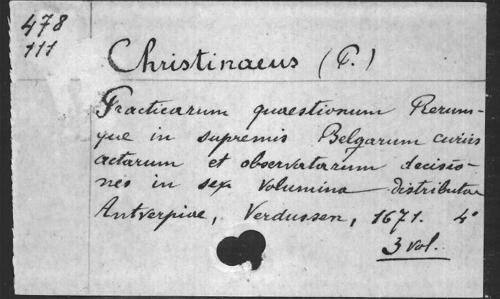 478
111
Christinaeus (P.)
Practicarum quaestionum Rerum-
que in supremis Belgarum curiis
actarum et observatarum decisio-
nes in sex volumina distributae
Antverpiae, Verdussen, 1671. 4°
3 vol.